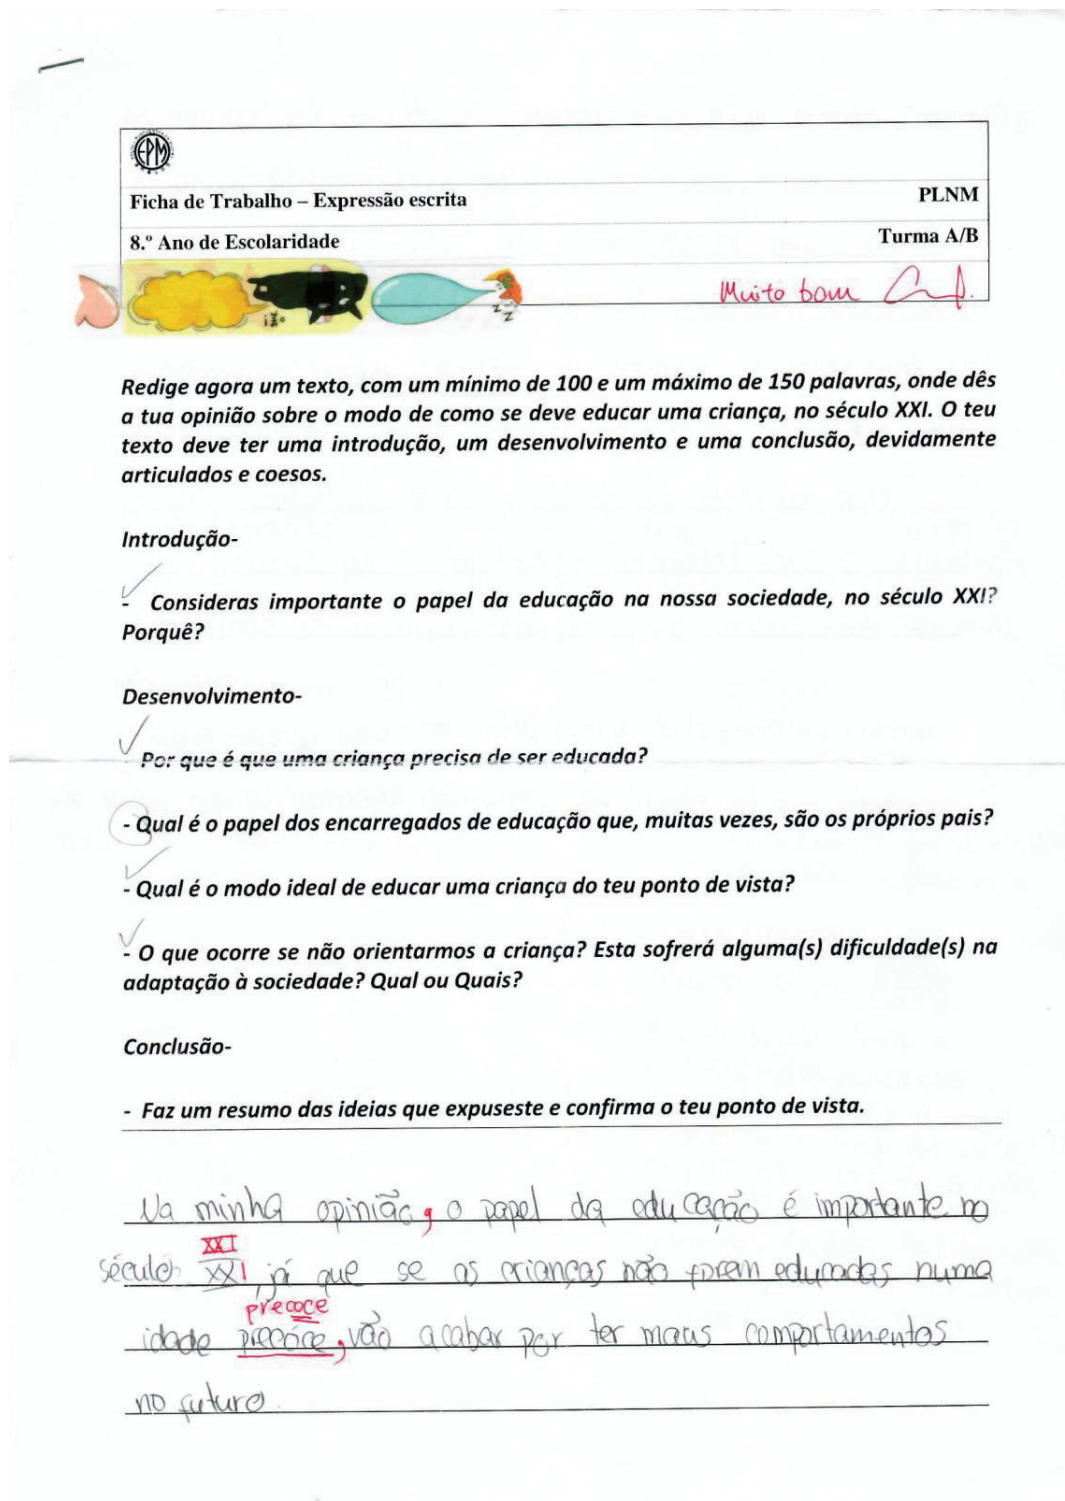 EPM
Ficha de Trabalho – Expressão escrita PLNM
8.º Ano de Escolaridade Turma A/B
Muito bom
Redige agora um texto, com um mínimo de 100 e um máximo de 150 palavras, onde dês
a tua opinião sobre o modo de como se deve educar uma criança, no século XXI. O teu
texto deve ter uma introdução, um desenvolvimento e uma conclusão, devidamente
articulados e coesos.
Introdução-
- Consideras importante o papel da educação na nossa sociedade, no século XXI?
Porquê?
Desenvolvimento-
- Por que é que uma criança precisa de ser educada?
- Qual é o papel dos encarregados de educação que, muitas vezes, são os próprios pais?
- Qual é o modo ideal de educar uma criança do teu ponto de vista?
- O que ocorre se não orientarmos a criança? Esta sofrerá alguma(s) dificuldade(s) na
adaptação à sociedade? Qual ou Quais?
Conclusão-
- Faz um resumo das ideias que expuseste e confirma o teu ponto de vista.
Na minha opinião, o papel da educação é importante no
XXI
século XXI, já que se as crianças não forem educadas numa
precoce
idade precóce, vão acabar por ter maus comportamentos
no futuro.